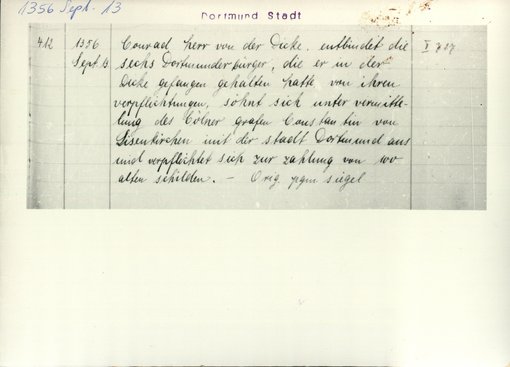 1356 Sept. 13
Dortmund Stadt
412 1356 Conrad herr von der Dicke, entbindet die I 727
Sept. 13 sechs Dortmunder bürger, die er in der
Dicke gefangen gehalten hatte von ihren
verpflichtungen, söhnt sich unter vermitte-
lung des Cölner grafen Constantin von
Lisenkirchen mit der stadt Dortmund aus
und verpflichtet sich zur zahlung von 100
alten schilden. — Orig. pgm siegel